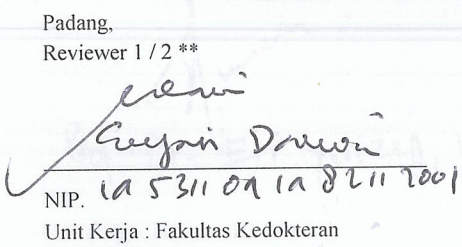 Padang,
Reviewer 1 / 2 **
NIP. 19 5311 09 19 8211 2001
Unit Kerja : Fakultas Kedokteran